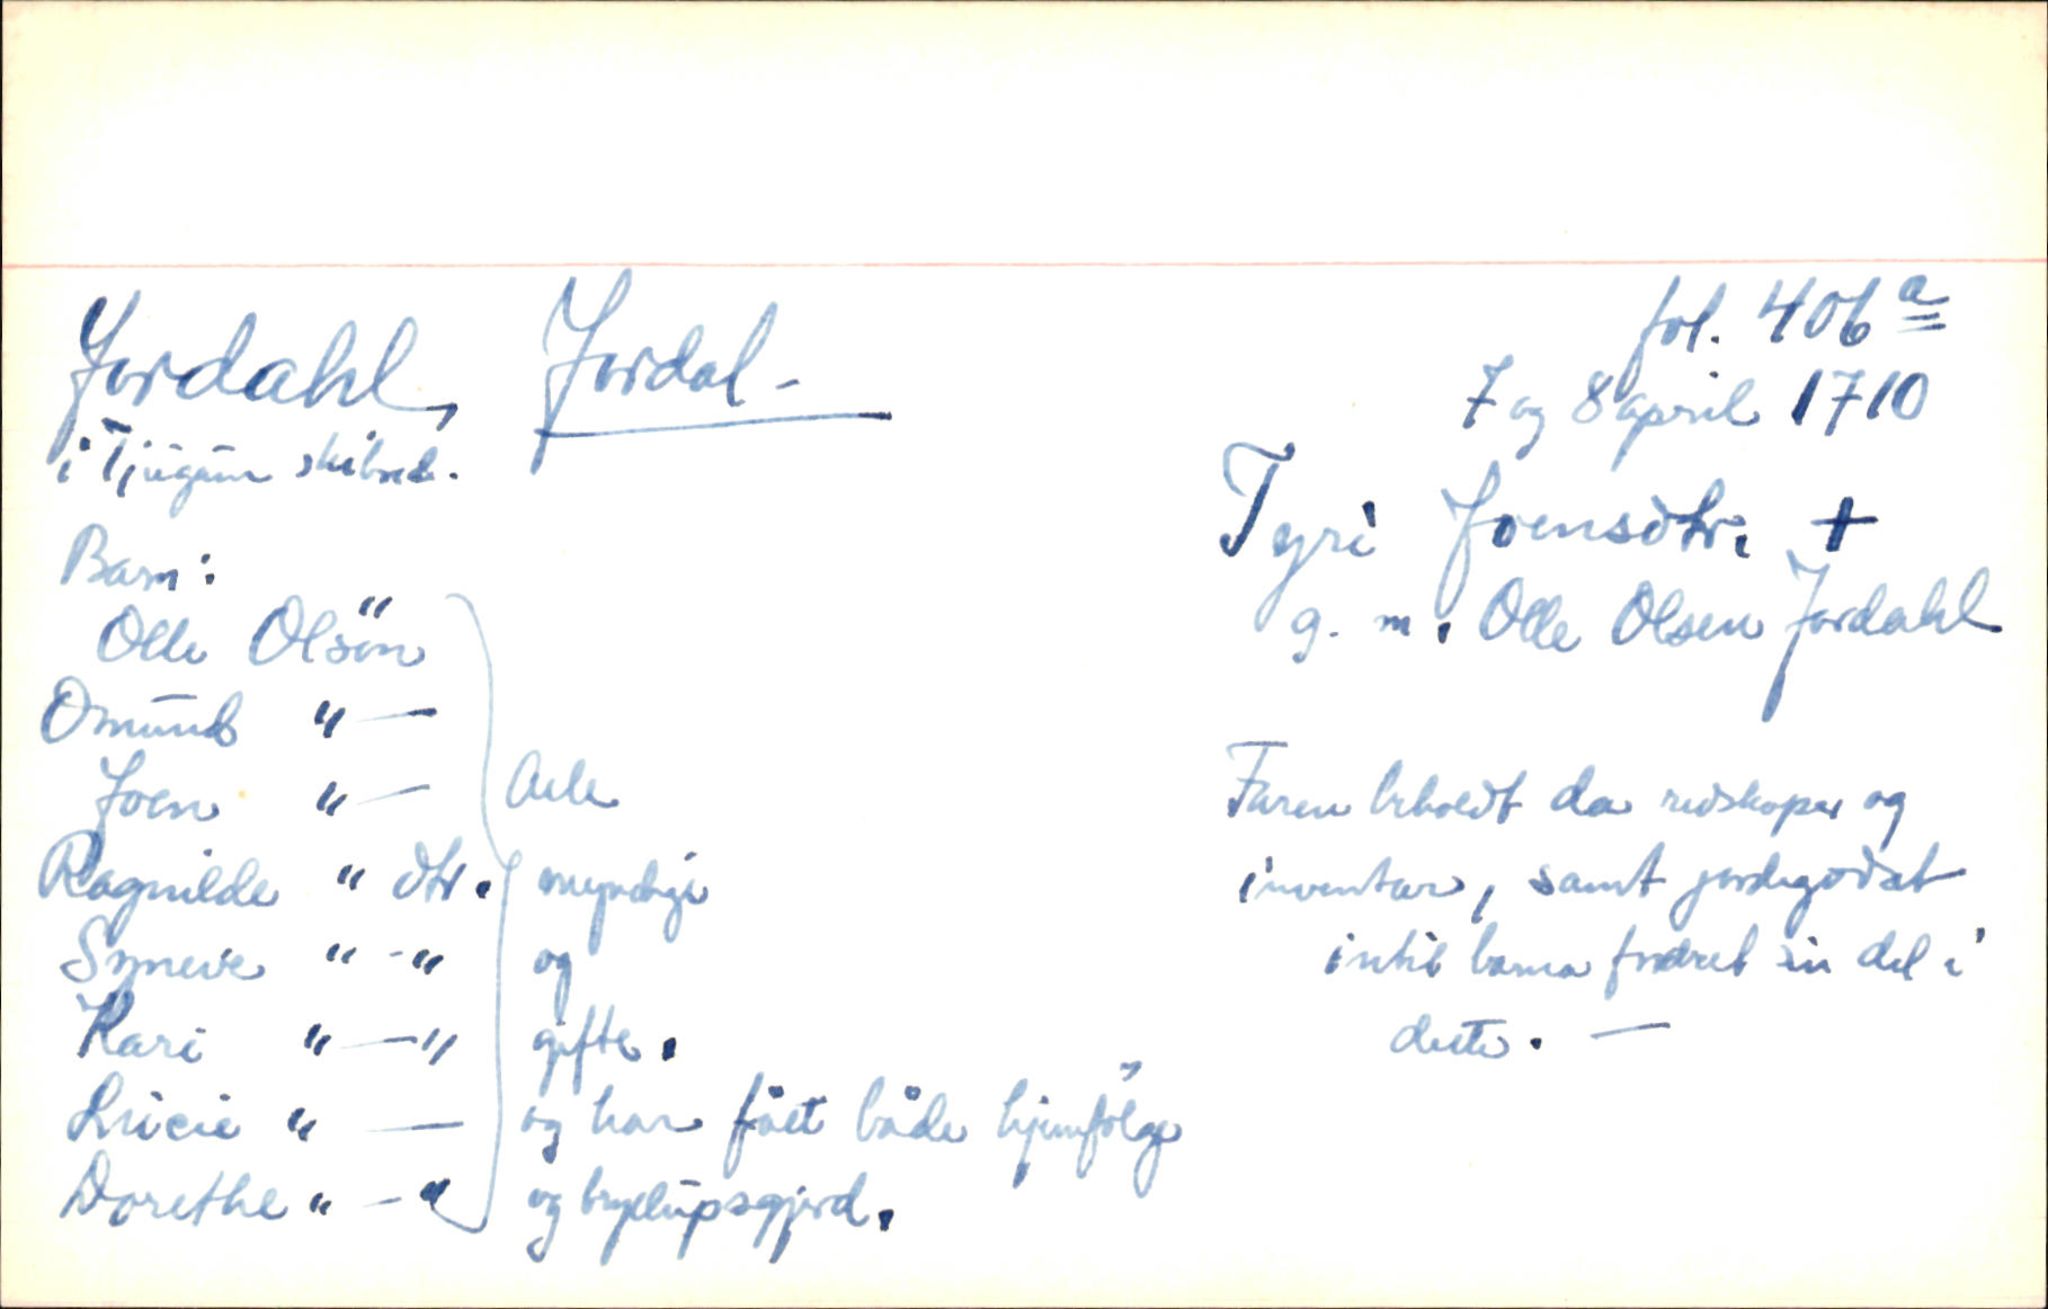 Jordahl, Jordal -
i Tjugum skibred.
fol. 406 a
7 og 8 april 1710
Tyri Joensdtr. +
g. m. Olle Olsen Jordahl
Barn:
Olle Olsön
Omund " —
Joen " —
Ragnilde " dtr.
Synneve " - "
Kari " — "
Lucie " —
Dorethe " - "
Alle
myndige
og
gifte.
og har fået både hjemfölge
og bryllupsgjerd.
Faren beholdt da redskaper og
inventar, samt jordegodset
intil barna fordret sin del i
dette. —